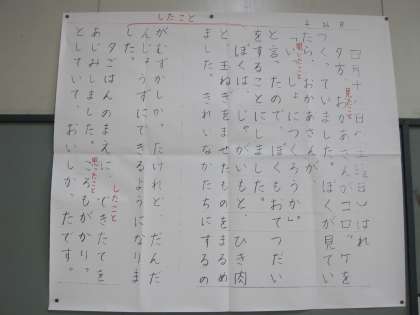 はれ
夕方、おかあさんがコロッケを
見たこと
つくっていました。ぼくが見てい
たら、おかあさんが、
「いっしょにつくろうか。」
聞いたこと
と言ったので、ぼくもおてつだい
をすることにしました。
したこと
ぼくは、じゃがいもと、ひき肉
と、玉ねぎをませたものをまるめ
ました。きれいなかたちにするの
がむずかしかったけれど、だんだ
んじょうずにできるようになりま
した。
したこと
夕ごはんのまえに、できたてを
あじみしました。ころもがカリッ
思ったこと
としていて、おいしかったです。